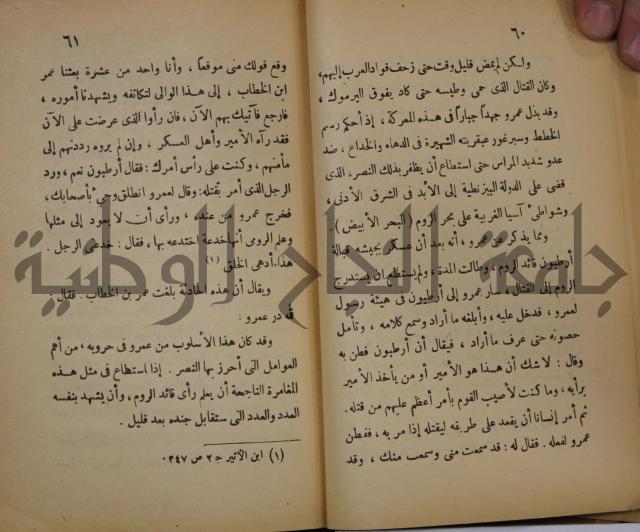 ٦٠
ولكن لم يمض قليل وقت حتى زحف قواد العرب إليهم،
وكان القتال الذى حمى وطيسه حتى كاد يفوق اليرموك،
وقد بذل عمرو جهداً جباراً فى هذه المعركة، إذ أحكم رسم
الخطط وسبر غور عبقريته الشهيرة فى الدهاء والخداع، ضد
عدو شديد المراس حتى استطاع أن يظفر بذلك النصر، الذى
قضى على الدولة البيزنطية إلى الأبد فى الشرق الأدنى،
وشواطىء آسيا الغربية على بحر الروم (البحر الأبيض).
ومما يذكر عن عمرو، أنه بعد أن عسكر بجيشه قبالة
أرطبون قائد الروم، وطالت المدة، ولم يستطع ان يستدرج
الروم إلى القتال، سار عمرو إلى أرطبون فى هيئة رسول
لعمرو، فدخل عليه، وأبلغه ما أراد وسمع كلامه، وتأمل
حصونه حتى عرف ما أراد، فيقال أن أرطبون فطن به
وقال: لا شك أن هذا هو الأمير أو من يأخذ الأمير
برأيه، وما كنت لأصيب القوم بأمر أعظم عليهم من قتله.
ثم أمر إنسانا أن يقعد على طريقه ليقتله إذا مر به، ففطن
عمرو لفعله. فقال له: قد سمعت منى وسمعت منك، وقد
٦١
وقع قولك منى موقعاً، وأنا واحد من عشرة بعثنا عمر
ابن الخطاب، إلى هذا الوالى لنكاتفه ويشهدنا أموره،
فارجع فآتيك بهم الآن، فان رأوا الذى عرضت على الآن
فقد رآه الأمير وأهل العسكر، وإن لم يروه رددتهم إلى
مأمنهم، وكنت على رأس أمرك: فقال أرطبون نعم، ورد
الرجل الذى أمر بقتله: وقال لعمرو انطلق وجىء بأصحابك،
فخرج عمرو من عنده، ورأى أن لا يعود إلى مثلها
وعلم الرومى أنها خدعة اختدعه بها، فقال: خدعنى الرجل.
هذا أدهى الخلق (١)
ويقال أن هذه الحادثة بلغت عمر بن الخطاب. فقال:
لله در عمرو:
وقد كان هذا الأسلوب من عمرو فى حروبه، من أهم
العوامل التى أحرز بها النصر. إذا استطاع فى مثل هذه
المغامرة الناجحة أن يعلم رأى قائد الروم، وأن يشهد بنفسه
العدد والعدد التى ستقابل جنده بعد قليل.
(١) ابن الأثير ج ٢ ص ٣٤٧.
جامعة النجاح الوطنية